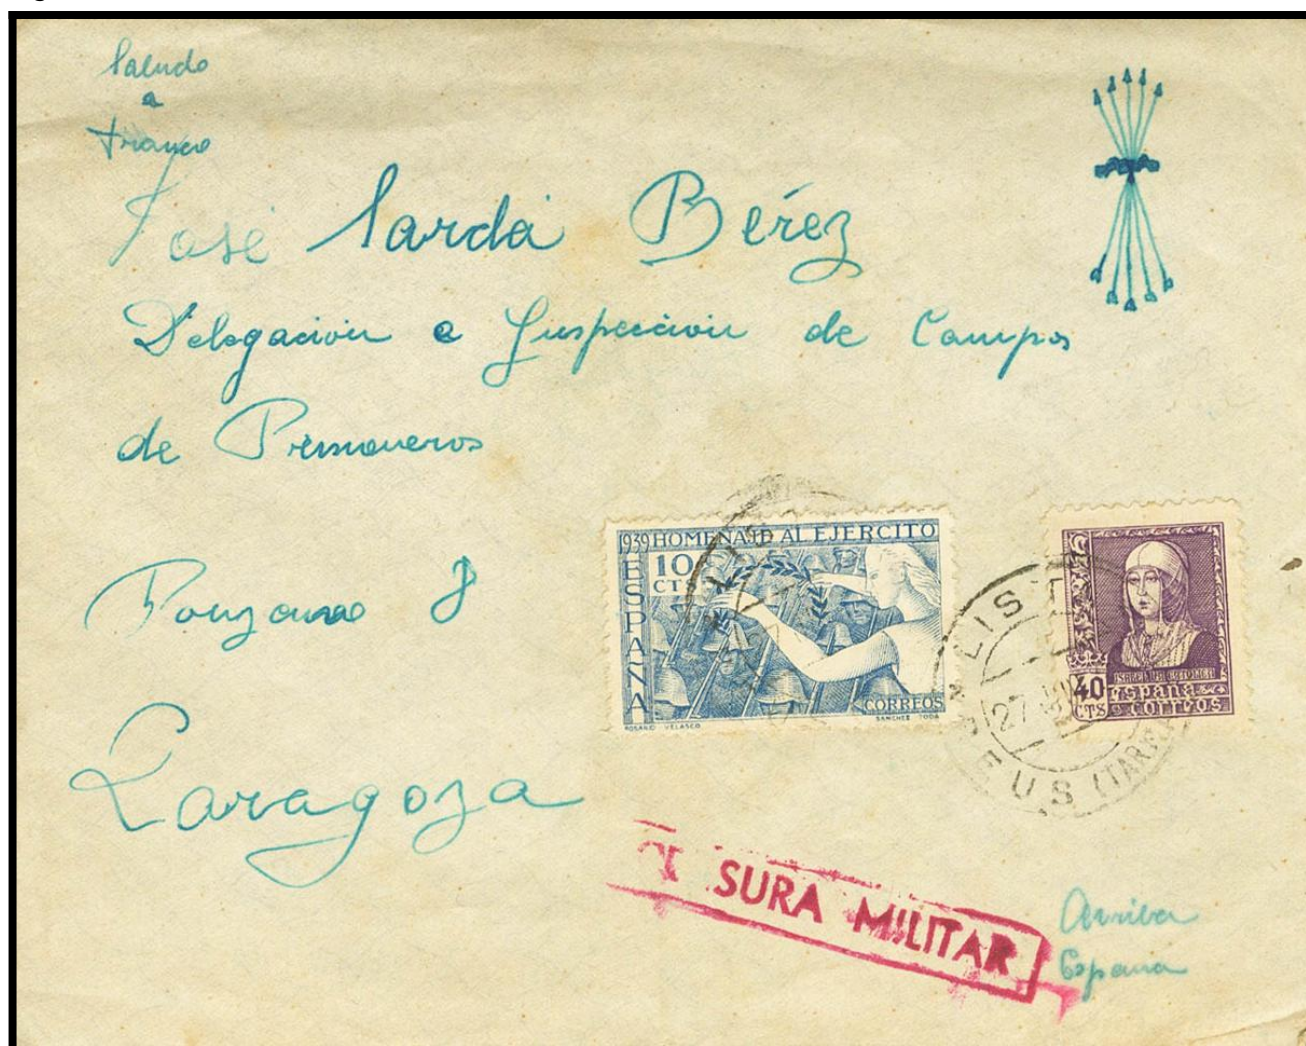 Saludo
a
Franco
José Sardá Bérez
Delegación e Inspección de Campos
de Prisioneros
8
Zaragoza
1939 HOMENAJE AL EJERCITO
10
CTS
ESPAÑA
CORREOS
ROSARIO VELASCO
SANCHEZ TODA
ISABEL LA CATOLICA
40
CTS
España
correos
LISTA
27
REUS (TARR
SURA MILITAR
Arriba
España